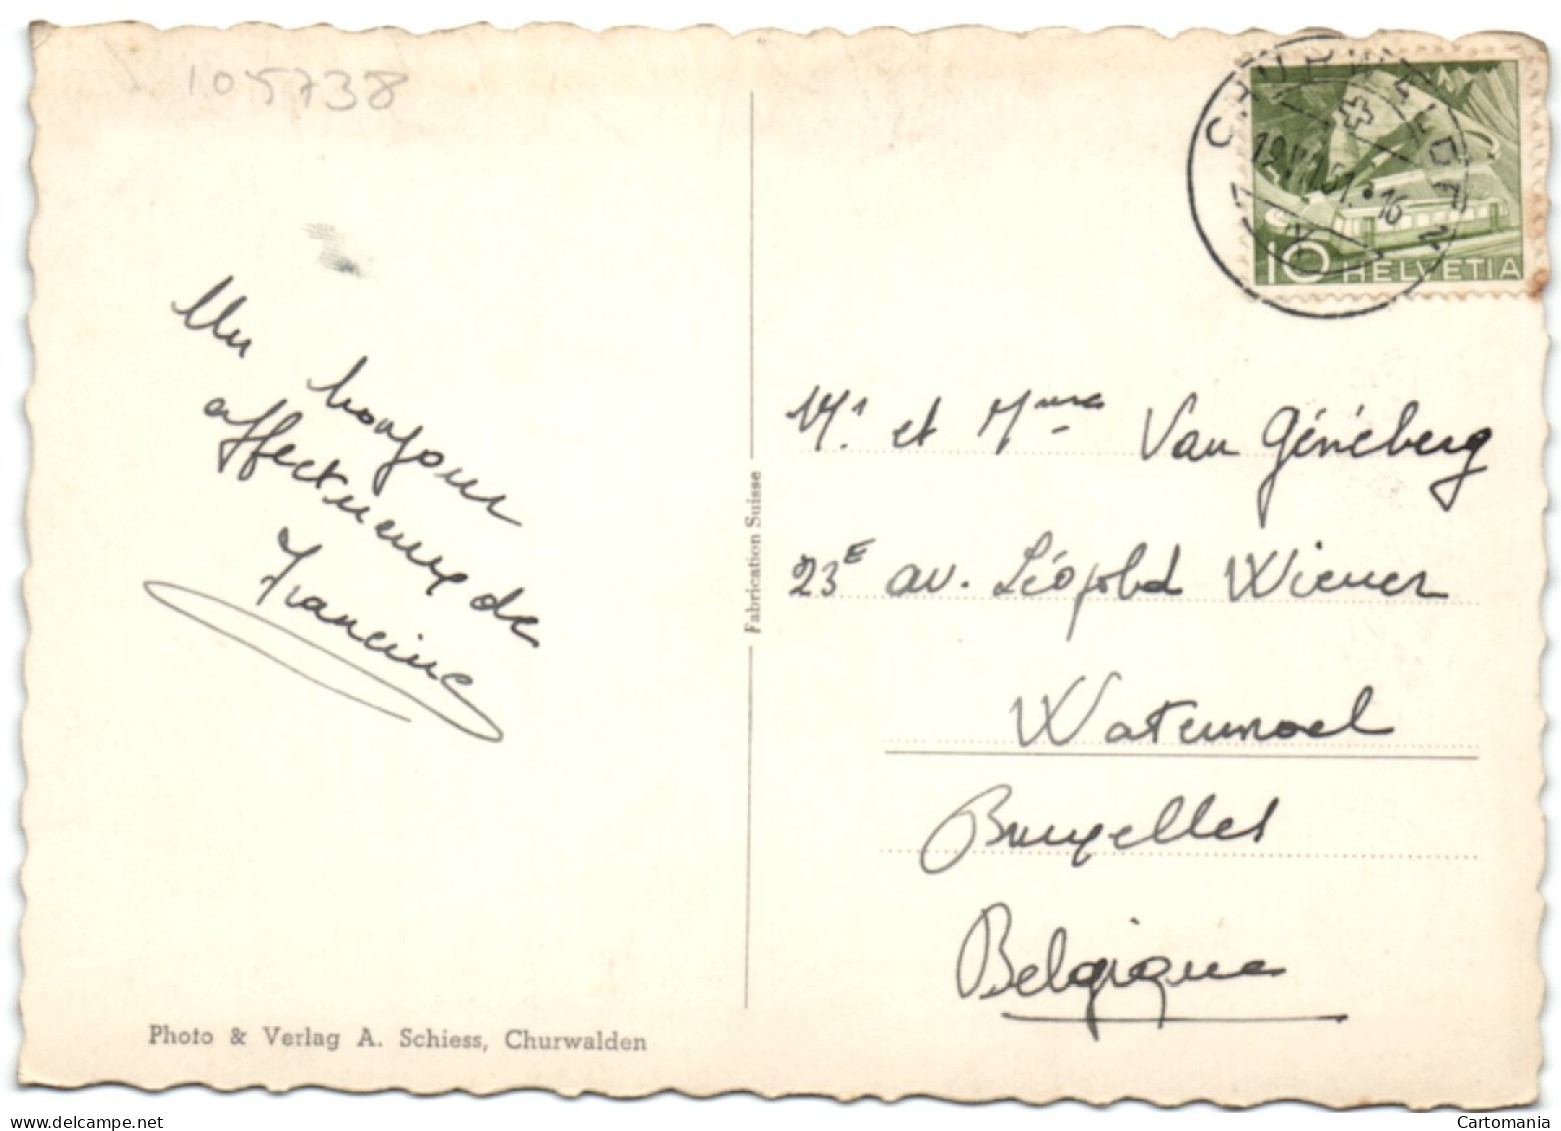 105738
Un bonjour
affectueux de
Francine
Photo & Verlag A. Schiess, Churwalden
Fabrication Suisse
CHURWALDEN
19.VII.51.•16
10 HELVETIA
Mr et Mme Van Généberg
23E av. Léopold Wiener
Watermael
Bruxelles
Belgique
www.delcampe.net
Cartomania